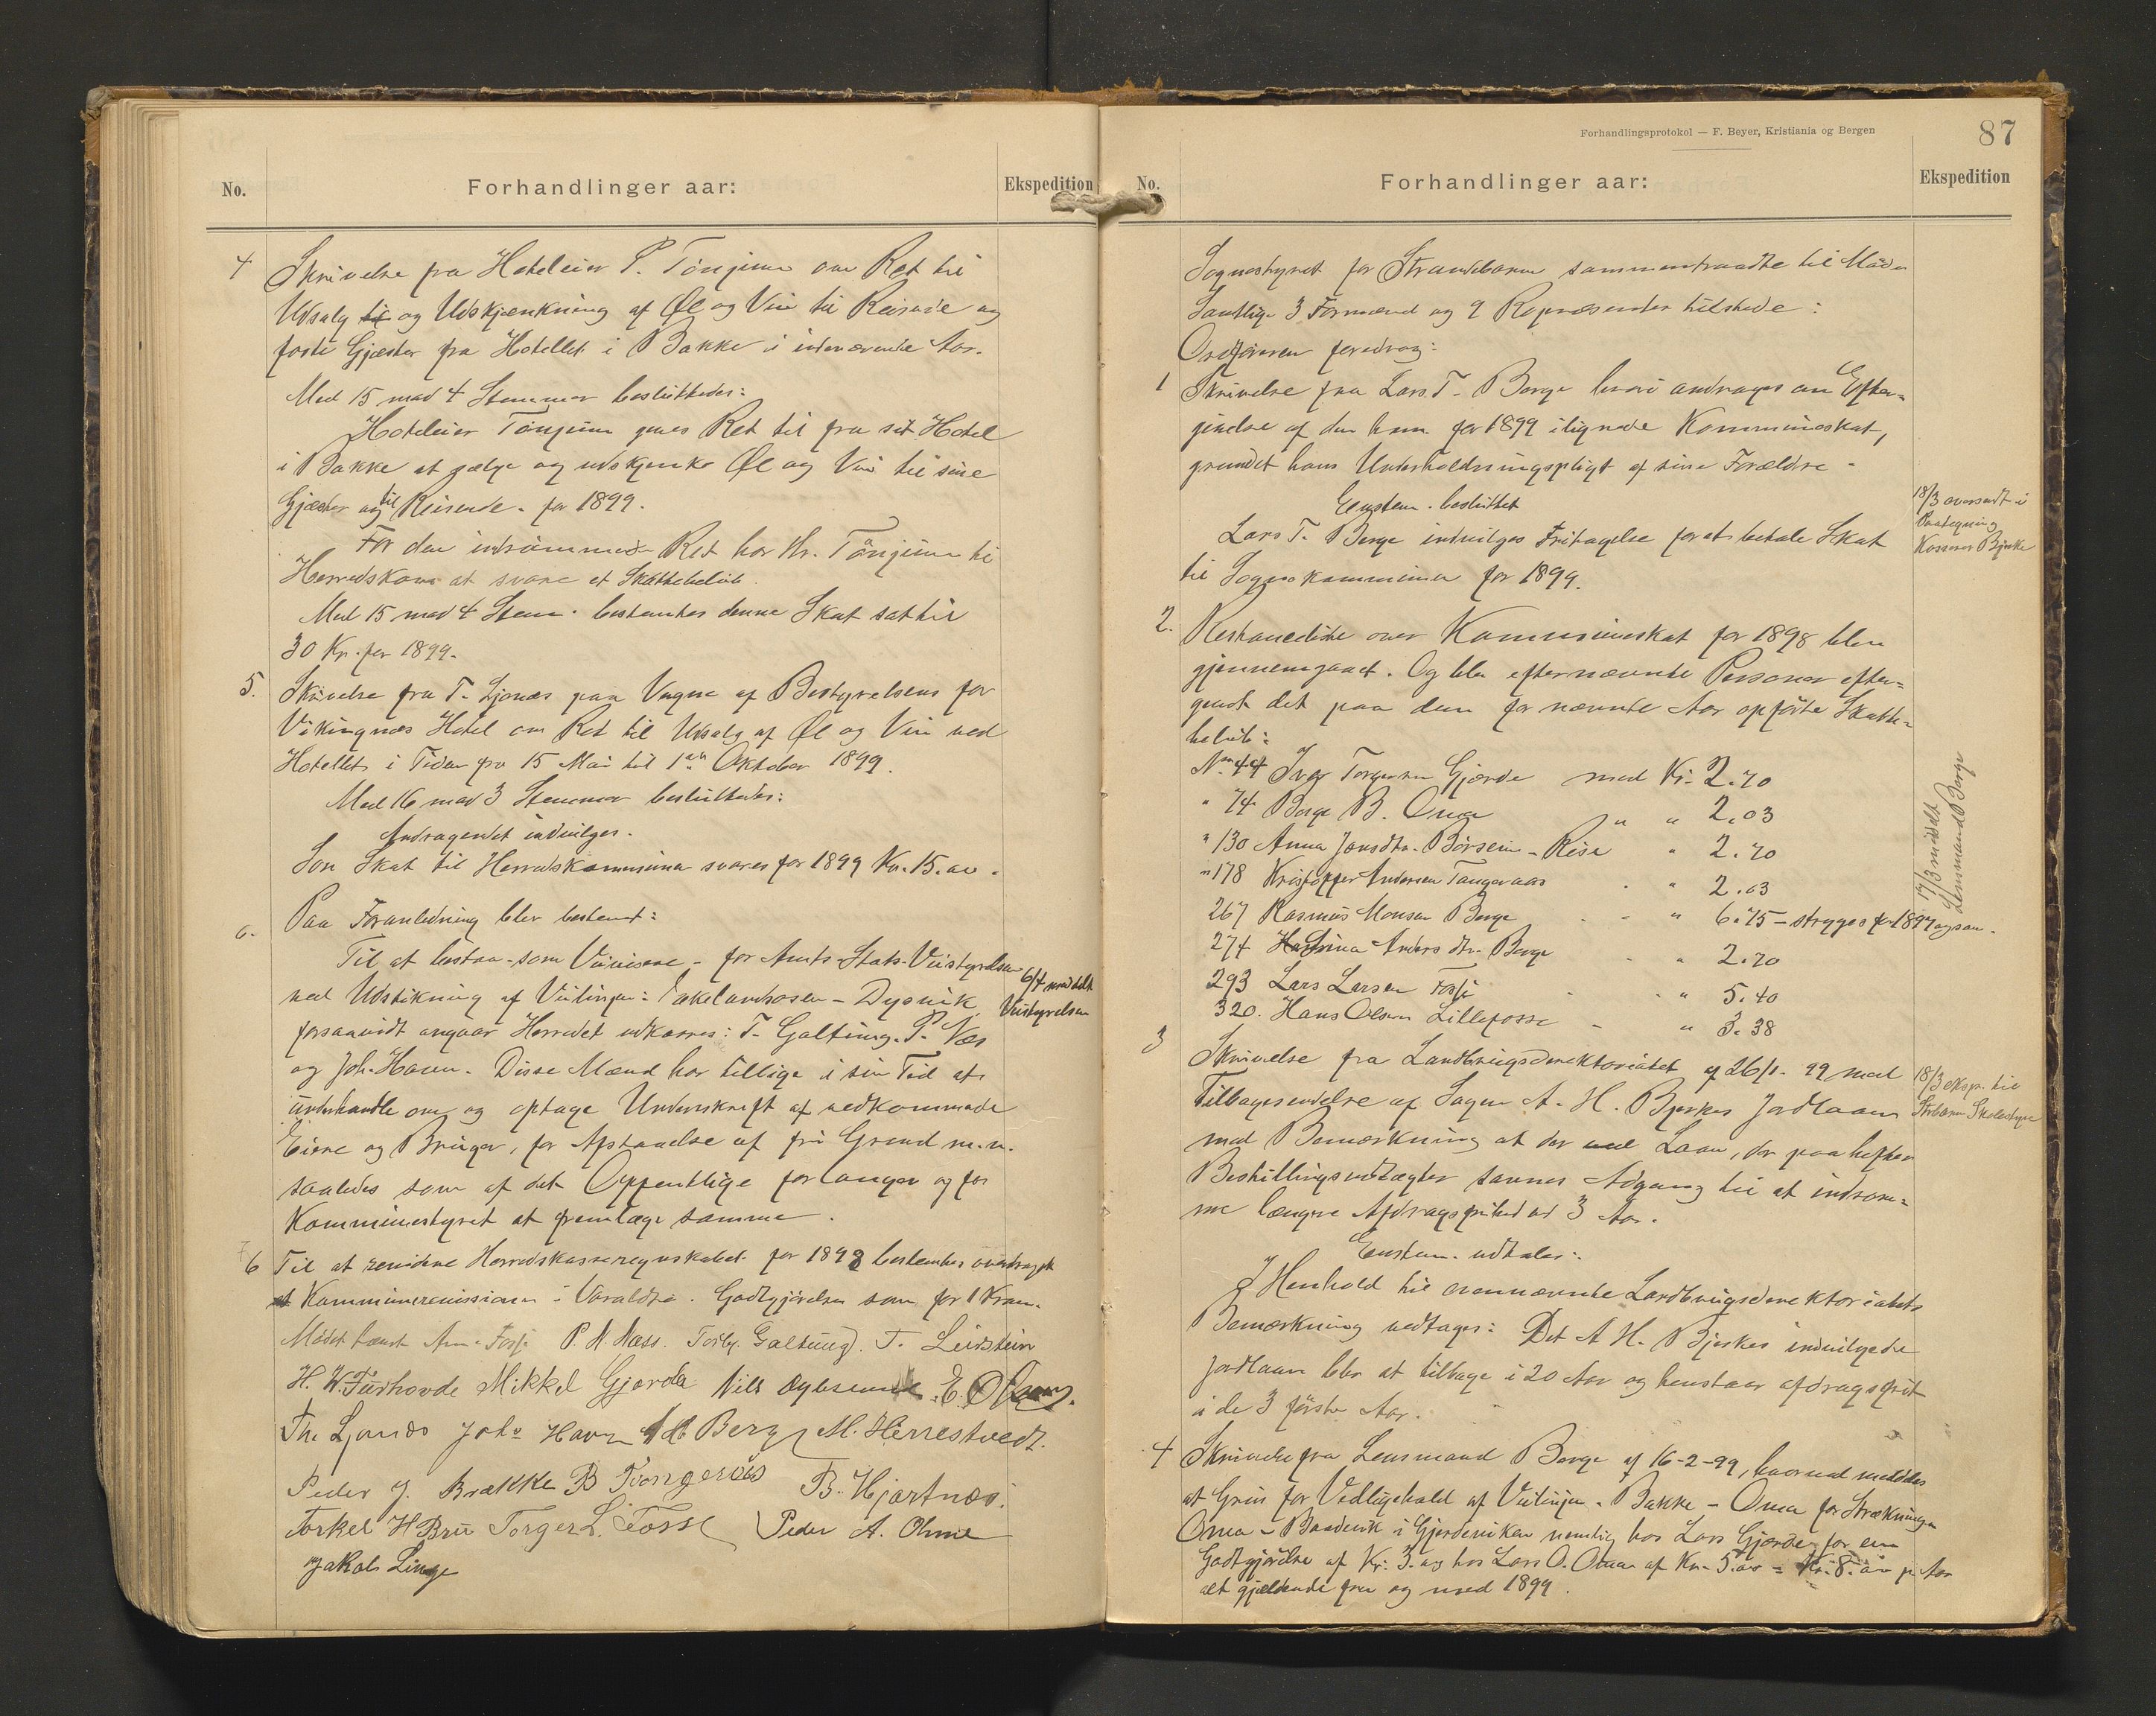 No.
Forhandlinger aar:
Ekspedition
4 Skrivelse fra Hoteleier P. Tönjum om Ret til
Udsalg og Udskjænkning af Øl og Vin til Reisende og
faste Gjæster fra Hotellet i Bakke i indeværende Aar.
Med 15 mod 4 Stemmer besluttedes:
Hoteleier Tönjum gives Ret til fra sit Hotel
i Bakke at sælge og udskjenke Øl og Vin til sine
Gjæster og til Reisende for 1899.
For den indrømmede Ret har Hr. Tönjum til
Herredskom at svare et Skattebeløb.
Med 15 mod 4 Stem. bestemtes denne Skat sat til
30 Kr. for 1899.
5. Skrivelse fra T. Ljonæs paa Vegne af Bestyrelsen for
Vikingnæs Hotel om Ret til Udsalg af Øl og Vin ved
Hotellet i Tiden fra 15 Mai til 1ste Oktober 1899.
Med 16 mod 3 Stemmer besluttedes:
Andragendet indvilges.
Som Skat til Herredskommunen svares for 1899 Kr. 15.00.
6. Paa Foranledning blev bestemt:
Til at bistaa som Veivisere for Amts Stats Veistyrelsen
ved Udstikning af Veilinjen: Eikelandsosen - Dysvik
6/4 meddelt
Veistyrelsen
forsaavidt angaar Herredet udkaares: T. Galtung. P. Næs
og Joh. Havn. Disse Mænd har tillige i sin Tid at
underhandle om og optage Underskrift af vedkommende
Eiere og Bruger, for Afstaaelse af fri Grund m.m.
saaledes som af det Offentlige forlanges og for
Kommunestyret at fremlægge samme.
6 Til at revidere Herredskasseregnskabet for 1898 bestemtes overdraget
Kommunerevisionen i Varaldsø. Godtgjörelse som for
Mødet hævet Am. Fosse P. N. Næss. Torbj. Galtung. T. Leirstein
H. W. Furhovde Mikkel Gjerde Nils
Th. Ljonæs Joh. Havn Berge M. Herrestvedt.
Peder J. Brække B Tvongeraas B. Hjartnæs.
Torkel H Bru Torger L. Fosse Peder A. Ohme
Jakob Linge
Forhandlingsprotokol — F. Beyer, Kristiania og Bergen
87
No.
Forhandlinger aar:
Ekspedition
Sognestyret for Strandebarm sammentraadte til Møde
Samtlige 3 Formænd og 9 Repræsenter tilstede:
Ordföreren foredrog:
1 Skrivelse fra Lars T. Berge hvori andrages om Efter-
givelse af den ham for 1899 ilignede Kommuneskat,
grundet hans Underholdningspligt af sine Forældre -
Enstem. besluttet
Lars T. Berge indvilges Fritagelse for at betale Skat
til Sognekommunen for 1899.
18/3 oversendt i
Paategning
Kasserer Bjerke
2. Restanceliste over Kommuneskat for 1898 blev
gjennemgaaet. Og blev efternævnte Personer efter-
givet det paa dem for nævnte Aar opførte Skatte-
beløb:
No 44 Ivar Torgersen Gjerde med Kr. 2.70
" 74 Børge B. Oma " " 2.03
" 130 Anna Jonsdtr. Børsem - Rise " 2.70
" 178 Kristoffer Andersen Tangeraas " 2.03
267 Rasmus Monsen Berge " 6.75 - stryges for 1897 ogsaa.
274 Andersdtr. Berge " 2.70
293 Lars Larsen Fosse " 5.40
320. Hans Olsen Lillefosse " 3.38
17/3 meddelt
Lensmand Berge
3 Skrivelse fra Landbrugsdirektoriatet af 26/1-99 med
Tilbagesendelse af Sagen A. H. Bjerkes Jordlaan
med Bemærkning at der ved Laan, der paa hefter
Bestillingsvedtægter savnes Adgang til at indrøm-
me længere Afdragsfrihed end 3 Aar.
18/3 eksp. til
Strbarm Skolestyre
Enstem. udtales:
I Henhold til ovennævnte Landbrugsdirektoriatets
Bemærkning vedtages: Det A H. Bjerkes indvilgede
Jordlaan blev at tilbage i 20 Aar og henstaar afdragsfrit
i de 3 første Aar.
4 Skrivelse fra Lensmand Berge af 16-2-99, hvorved meddeles
at Grus for Vedligehold af Veilinjen Bakke - Oma for Strækningen
Oma - Baadevik i Gjerdeviken nemlig hos Lars Gjerde for en
Godtgjörelse af Kr. 3. og hos Lars O. Oma af Kr. 5.00 = Kr. 8.00 pr Aar
alt gjeldende fra og med 1899.